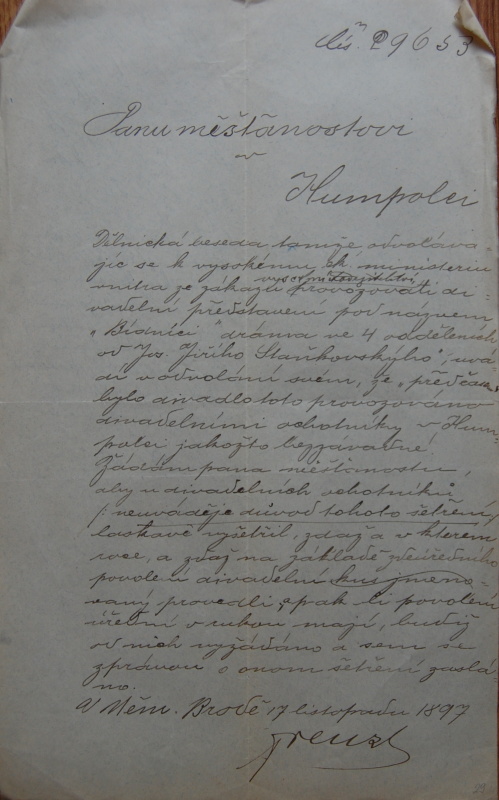 Čís. 29653
Panu měšťanostovi
v
Humpolci
Dělnická beseda tamže odvoláva-
jíc se k vysokému c.k. ministeriu
vnitra ze zákazu provozovati di-
vadelní představení pod názvem
„Bídníci" dráma ve 4 odděleních
od Jos. Jiřího Staňkovského", uvá-
dí v odvolání svém, že „předčasně
bylo divadlo toto provozováno
divadelními ochotníky v Hum-
polci jakožto bezzávadné.
Žádám pana měšťanostu,
aby u divadelních ochotníků
/: neuváděje důvod tohoto šetření,
laskavě vyšetřil, zdaž a v kterém
roce, a zdaž na základě zdeúředního
povolení divadelní kus jmeno-
vaný provedli, a pak li povolení
úřední v rukou mají, budiž
od nich vyžádáno a sem se
zprávou o onom šetření zaslá-
no.
V Něm. Brodě 17 listopadu 1897